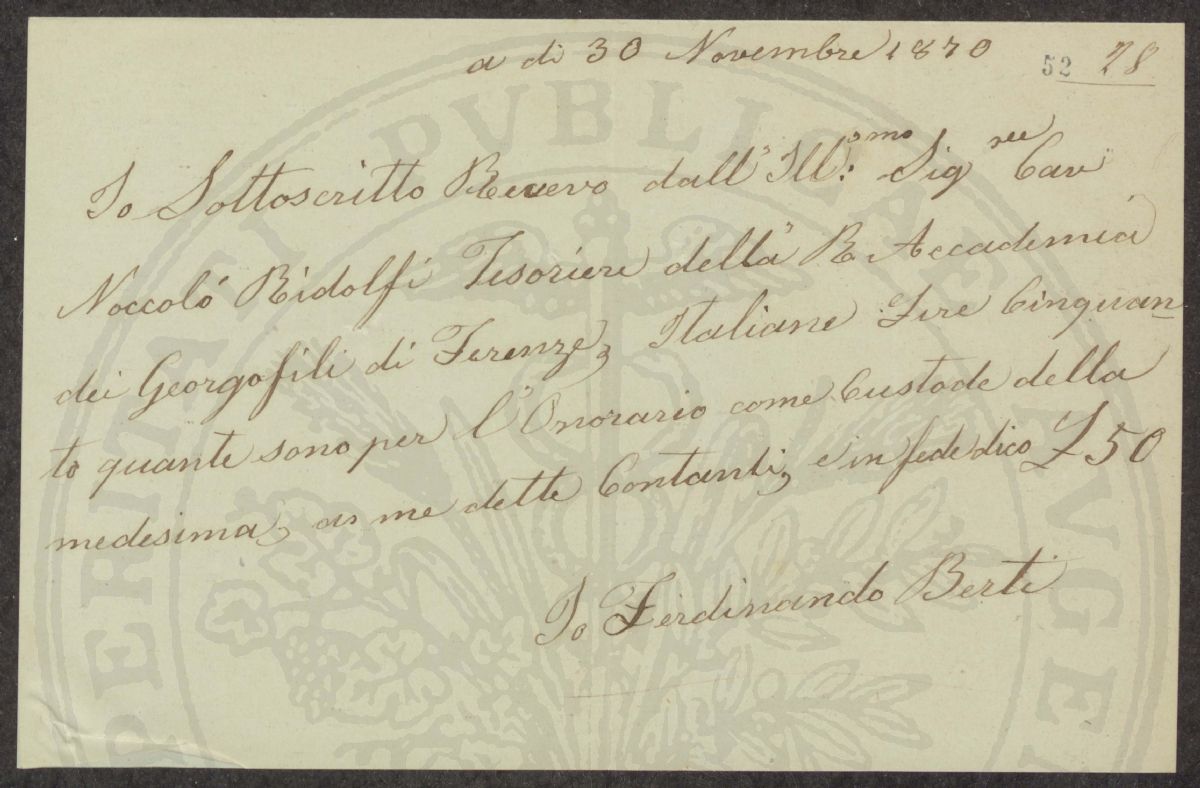 a di 30 Novembre 1870
52 28
Io Sottoscritto Recevo dall' Ill:mo Sigre Cav
Noccoló Ridolfi Tesoriere della R. Accademia
dei Georgofili di Ferenze, Italiane Lire Cinquan
to quante sono per l'Onorario come Custode della
medesima, a me dette Contanti, e in fede dico £50
Io Ferdinando Berti
PERITATI PVBLICAE AVGE